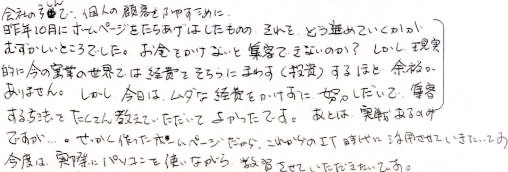 会社の引しで、個人の顧客を増やすために
昨年10月にホームページをたちあげはしたものの それを、どう進めていくかが
むずかしいところでした。お金をかけないと集客できないのか？しかし現実
的に今の実業の世界では経費をそちらにまわす（投資）するほど余裕が
ありません。しかし今日は、ムダな経費をかけずに、努力しだいで、集客
する方法をたくさん教えていただいてよかったです。あとは、実戦あるのみ
ですが…。せっかく作ったホームページだから、これからのIT時代に活用させていきたいです
今度は、実際にパソコンを使いながら教習させていただきたいです。